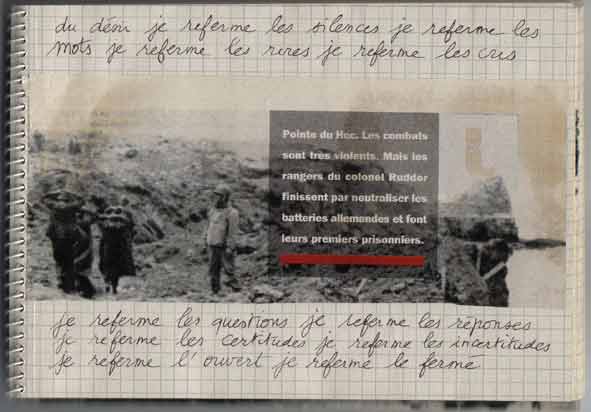 du désir je referme les silences je referme les
mots je referme les rires je referme les cris
Pointe du Hoc. Les combats
sont très violents. Mais les
rangers du colonel Rudder
finissent par neutraliser les
batteries allemandes et font
leurs premiers prisonniers.
je referme les questions je referme les réponses
je referme les certitudes je referme les incertitudes
je referme l'ouvert je referme le fermé